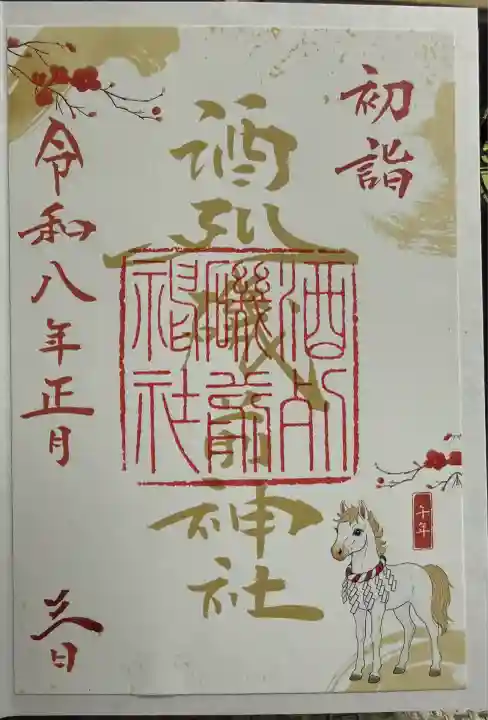 初詣
酒列磯前神社
酒列
磯前
神社
午年
令和八年正月
三日